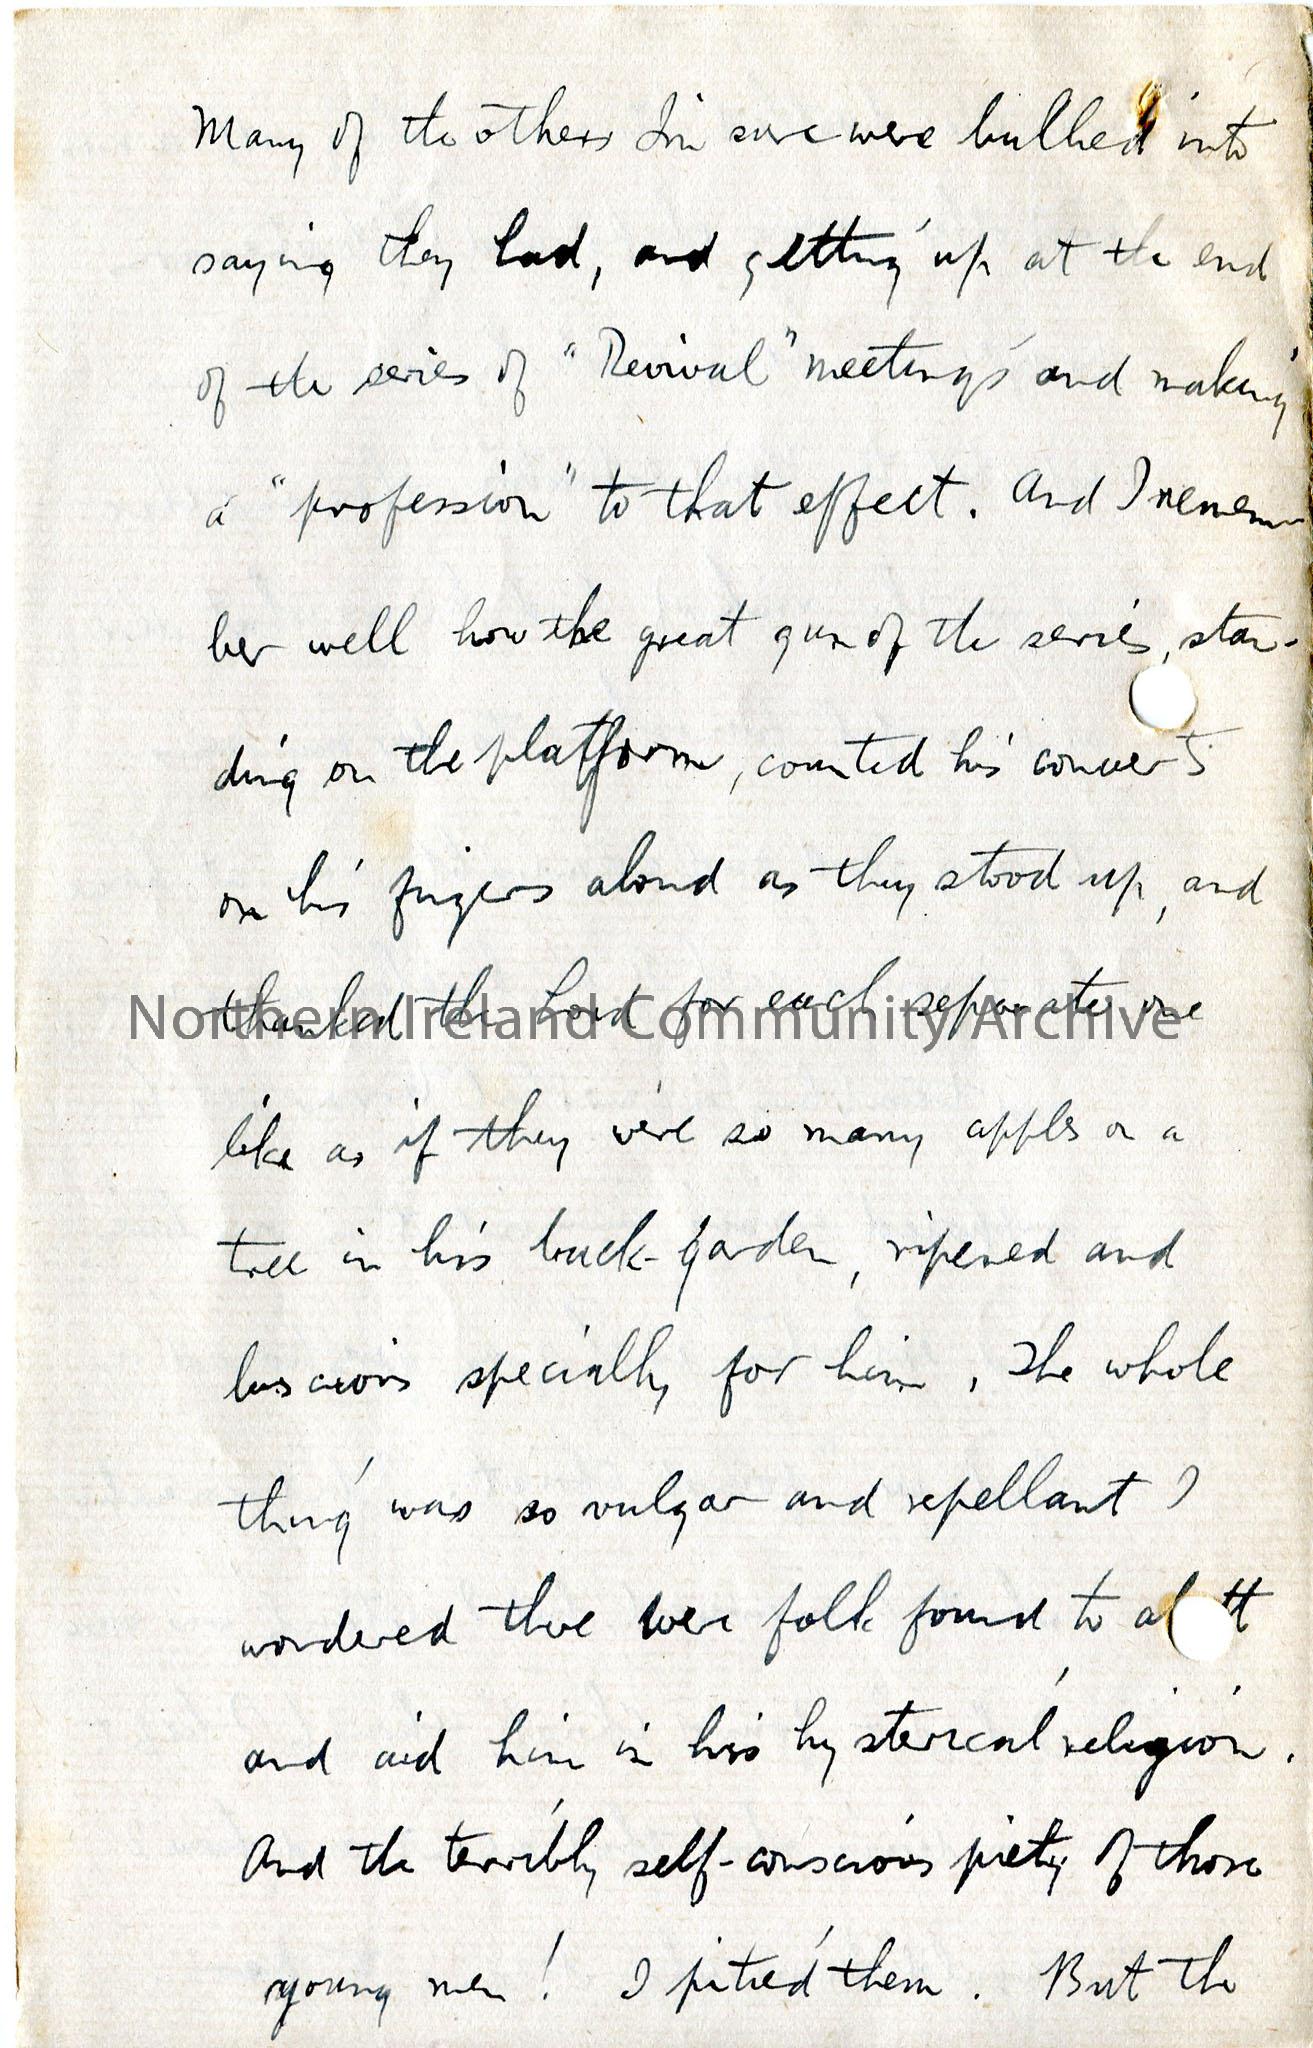 Many of the others I'm sure were bullied into
saying they had, and getting up at the end
of the series of "Revival" meetings and making
a "profession" to that effect. And I remem-
ber well how the great gun of the series, stan-
ding on the platform, counted his converts
on his fingers aloud as they stood up, and
thanked the Lord for each separate one
Northern Ireland Community Archive
like as if they were so many apples on a
tree in his back-garden, ripened and
luscious specially for him. The whole
thing was so vulgar and repellant I
wondered there were folk found to abett
and aid him in his hysterical religion.
And the terribly self-conscious piety of those
young men! I pitied them. But the